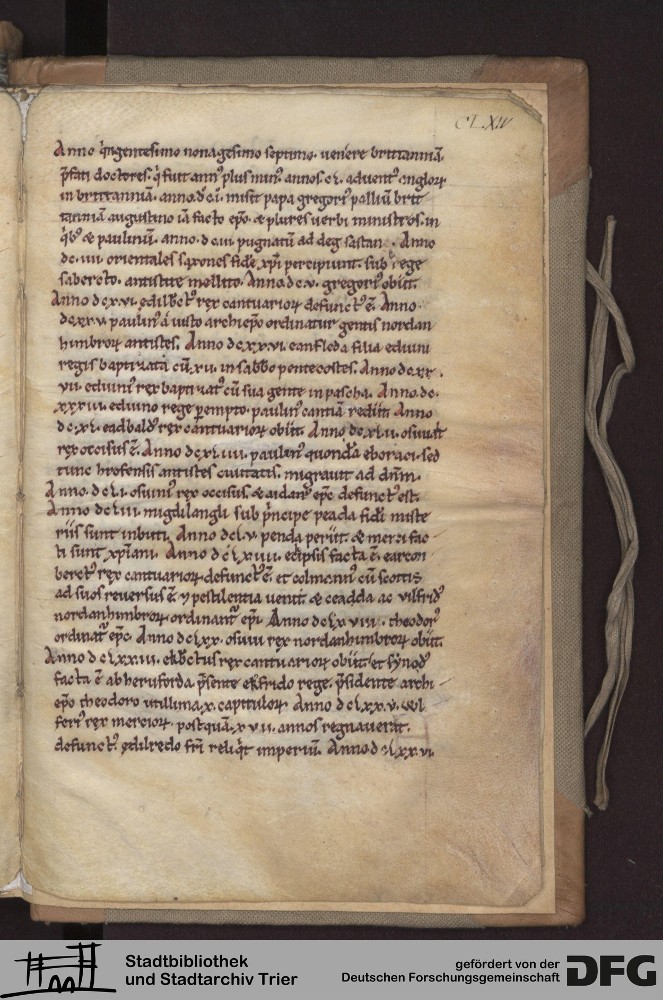 CLXIV
Anno q̇ngentesimo nonagesimo septimo. venere brittanniā.
p̄fati doctores. q̇ fuit ann᷒ plus min᷒. annos. cl. advent᷒ anglorꝝ
in brittanniā. anno. dci. misit papa gregori᷒ palliū brit
tanniā augustino iā facto ep̄o. & plures verbi ministros. in
q̇b᷒ & paulinū. anno. dciii. pugnatū ad deg sastan. Anno
dc. iiii. orientales saxones fidē xp̄i percipiunt. sub rege
sabercto. antistite mellito. Anno. dc.v. gregori᷒ obiit.
Anno dcxvi. ędilbct᷒ rex cantuariorꝝ defunct᷒ ē. Anno.
dcxxv. paulin᷒ á iusto archiep̄o ordinatur gentis nordan
himbrorꝝ antistes. Anno dcxxvi. eanfleda filia eduini
regis baptizata cū. xii. in sabb̄o pentecostes. Anno dcxx.
vii. eduini᷒ rex baptizat᷒ cū sua gente in pascha. Anno. dc.
xxxiii. eduino rege ꝑempto. paulin᷒ cantiā rediit. Anno
dcxl. eadbald᷒ rex cantuariorꝝ obiit. Anno dcxlii. osuualt
rex occisus ē. Anno dcxliiii. paulin᷒ quondā eboraci. sed
tunc hrofensis antistes civitatis. migravit ad dn̄m.
Anno. dcli. osuini᷒ rex occisus. & aidan᷒ ep̄c defunct᷒ est.
Anno dcliii. migdilangli sub ṗncipe peada fidi miste
riis sunt inbuti. Anno dclv. penda periit. & merci fac
ti sunt xp̄iani. Anno dclxiiii. eclipsis facta ē. earcon
berct᷒ rex cantuariorꝝ defunct᷒ ē. et colmann᷒ cū scottis
ad suos reversus ē. ⁊ pestilentia venit. & ceadda ac vilfrid᷒
nordanhimbrorꝝ ordinant᷒ ep̄i. Anno dclxviii. theodor᷒
ordinat᷒ ep̄c. Anno dclxx. osuiu rex nordanhimbrorꝝ obiit.
Anno dclxxiii. ekb̄ctus rex cantuariorꝝ obiit. et synod᷒
facta ē ab herutforda p̄sente ekfrido rege. p̄sidente archi
ep̄o theodoro utillima. x. capitulorꝝ. Anno dclxxv. vvl
feri᷒ rex merciorꝝ. postquā. xvii. annos regnaverat.
defunct᷒. ędilredo fr̄i reliq̇t imperiū. Anno dclxxvi.
Stadtbibliothek
und Stadtarchiv Trier
gefördert von der
Deutschen Forschungsgemeinschaft
DFG